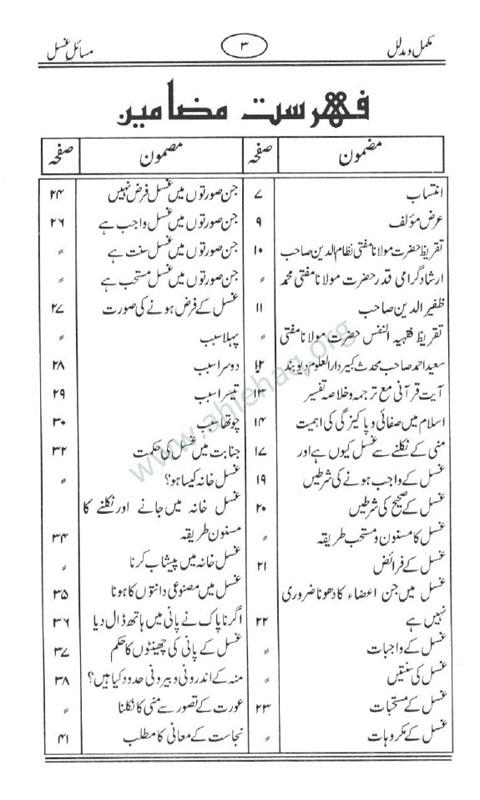 مکمل و مدلل ۳ مسائل غسل
فہرست مضامین
مضمون صفحہ
انتساب ۷
عرض مؤلف ۹
تقریظ حضرت مولانا مفتی نظام الدین صاحب ۱۰
ارشاد گرامی قدر حضرت مولانا مفتی محمد ۰
ظفیر الدین صاحب ۱۱
تقریظ فقیہہ النفس حضرت مولانا مفتی ۰
سعید احمد صاحب محدث کبیر دار العلوم دیوبند ۱۲
آیت قرآنی مع ترجمہ و خلاصہ تفسیر ۱۳
اسلام میں صفائی و پاکیزگی کی اہمیت ۱۴
منی کے نکلنے سے غسل کیوں ہے اور ۱۷
غسل کے واجب ہونے کی شرطیں ۱۹
غسل کے صحیح کی شرطیں ۲۰
غسل کا مسنون و مستحب طریقہ ۰
غسل کے فرائض ۲۱
غسل میں جن اعضاء کا دھونا ضروری
نہیں ہے ۲۲
غسل کے واجبات ۰
غسل کی سنتیں ۰
غسل کے مستحبات ۲۳
غسل کے مکروہات ۰
مضمون صفحہ
جن صورتوں میں غسل فرض نہیں ۲۴
جن صورتوں میں غسل واجب ہے ۲۶
جن صورتوں میں غسل سنت ہے ۰
جن صورتوں میں غسل مستحب ہے ۰
غسل کے فرض ہونے کی صورت ۲۷
پہلا سبب ۰
دوسرا سبب ۲۸
تیسرا سبب ۲۹
چوتھا سبب ۳۰
جنابت میں غسل کی حکمت ۳۲
غسل خانہ کیسا ہو؟ ۰
غسل خانہ میں جانے اور نکلنے کا
مسنون طریقہ ۳۴
غسل خانہ میں پیشاب کرنا ۰
غسل میں مصنوعی دانتوں کا ہونا ۳۵
اگر ناپاک نے پانی میں ہاتھ ڈال دیا ۳۶
غسل کے پانی کی چھینٹوں کا حکم ۳۷
منہ کے اندرونی و بیرونی حدود کیا ہیں؟ ۳۸
عورت کے تصور سے منی کا نکلنا ۰
نجاست کے معانی کا مطلب ۴۱
www.ahlehaq.org